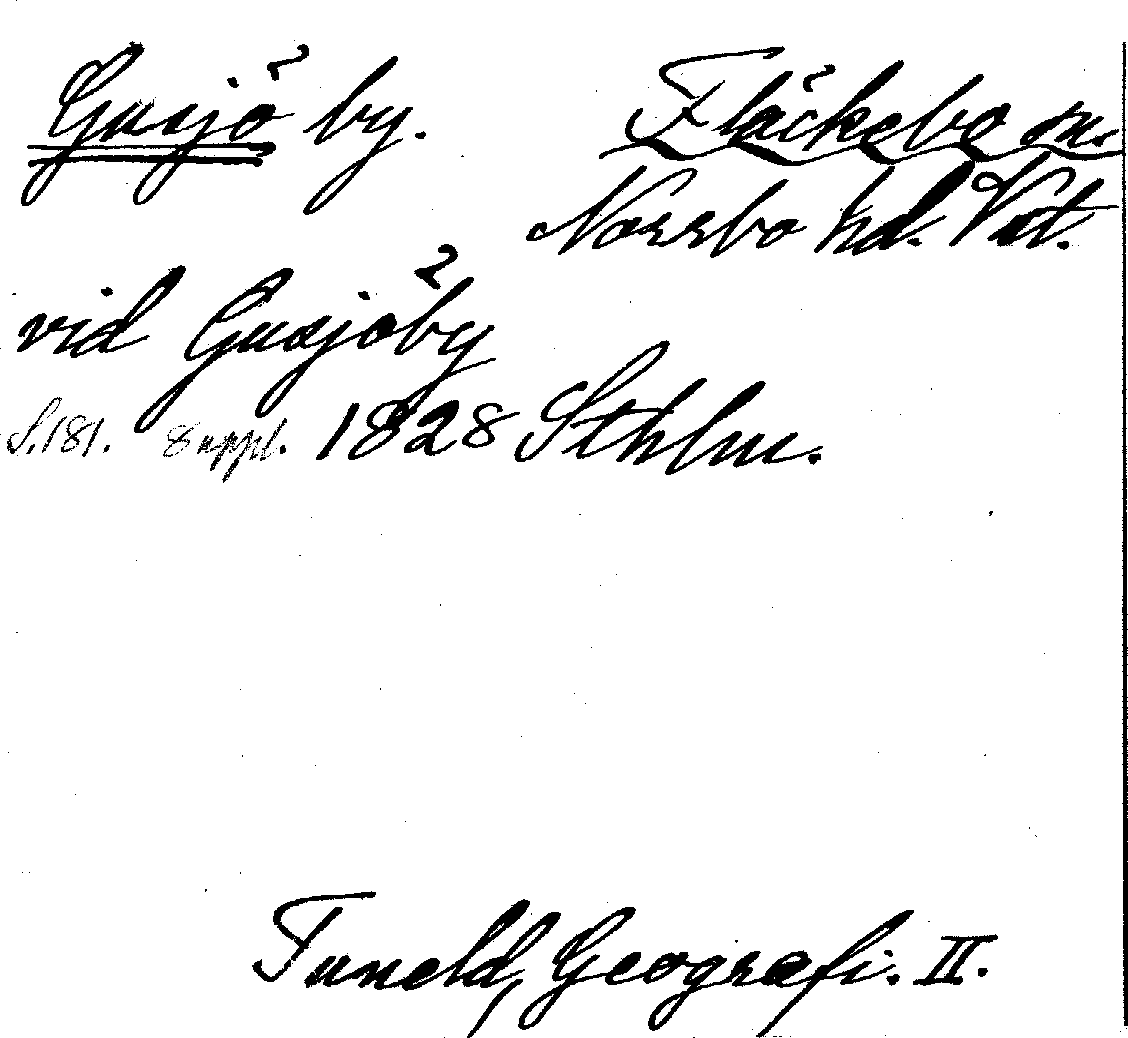 Gusjö by. Fläckebo sn.
Norrbo hd. Vstm.
vid Gusjöby
S. 181. Suppl. 1828 Sthlm.
Tuneld, Geografi. II.